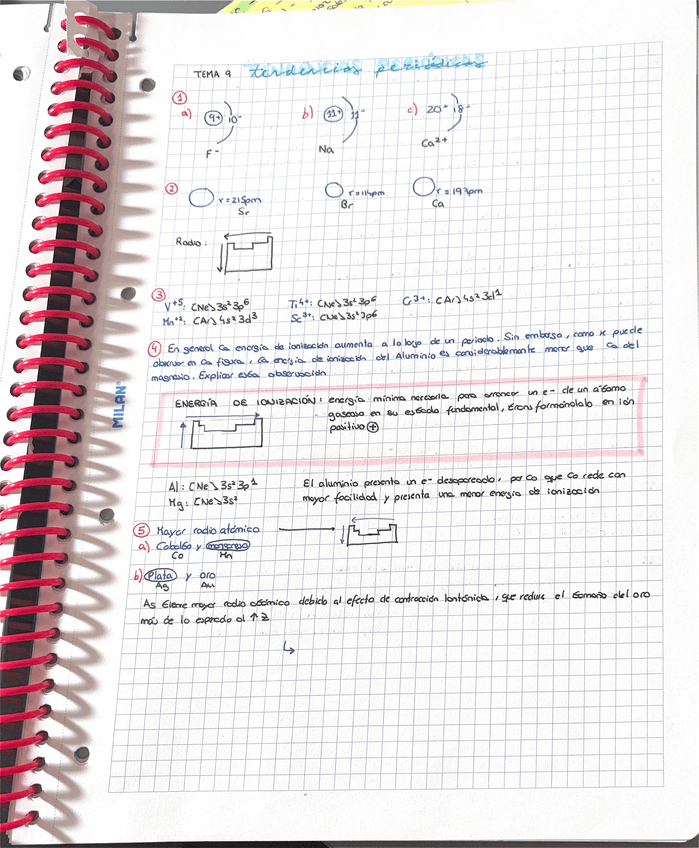 TEMA 9 tendencias periódicas
①
a) 9+ 10- b) 11+ 11- c) 20+ 18-
F- Na Ca2+
② r=215pm r=114pm r=197pm
Sr Br Ca
Radio:
③
V+5: [Ne]3s2 3p6 Ti4+: [Ne]3s2 3p6 Cr3+: [Ar]4s2 3d1
Mn+2: [Ar]4s2 3d3 Sc3+: [Ne]3s2 3p6
④ En general la energía de ionización aumenta a lo largo de un periodo. Sin embargo, como se puede
observar en la figura, la energía de ionización del Aluminio es considerablemente menor que la del
magnesio. Explicar esta observación
ENERGÍA DE IONIZACIÓN: energía mínima necesaria para arrancar un e- de un átomo
gaseoso en su estado fundamental, transformándolo en ión
positivo ⊕
Al: [Ne]3s2 3p1 El aluminio presenta un e- desapareado, por lo que lo cede con
Mg: [Ne]3s2 mayor facilidad y presenta una menor energía de ionización
⑤ Mayor radio atómico
a) Cobalto y manganeso
Co Mn
b) Plata y oro
Ag Au
As tiene mayor radio atómico debido al efecto de contracción lantánida, que reduce el tamaño del oro
más de lo esperado al ↑ Z
MILAN